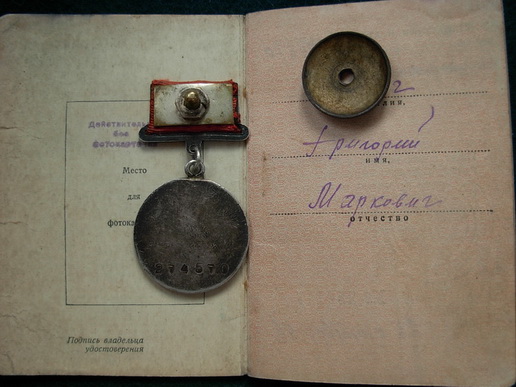 Действительн
без
фотокарт
Место
для
фотока
Подпись владельца
удостоверения
г
лия,
Григорий
имя,
Маркович
отчество